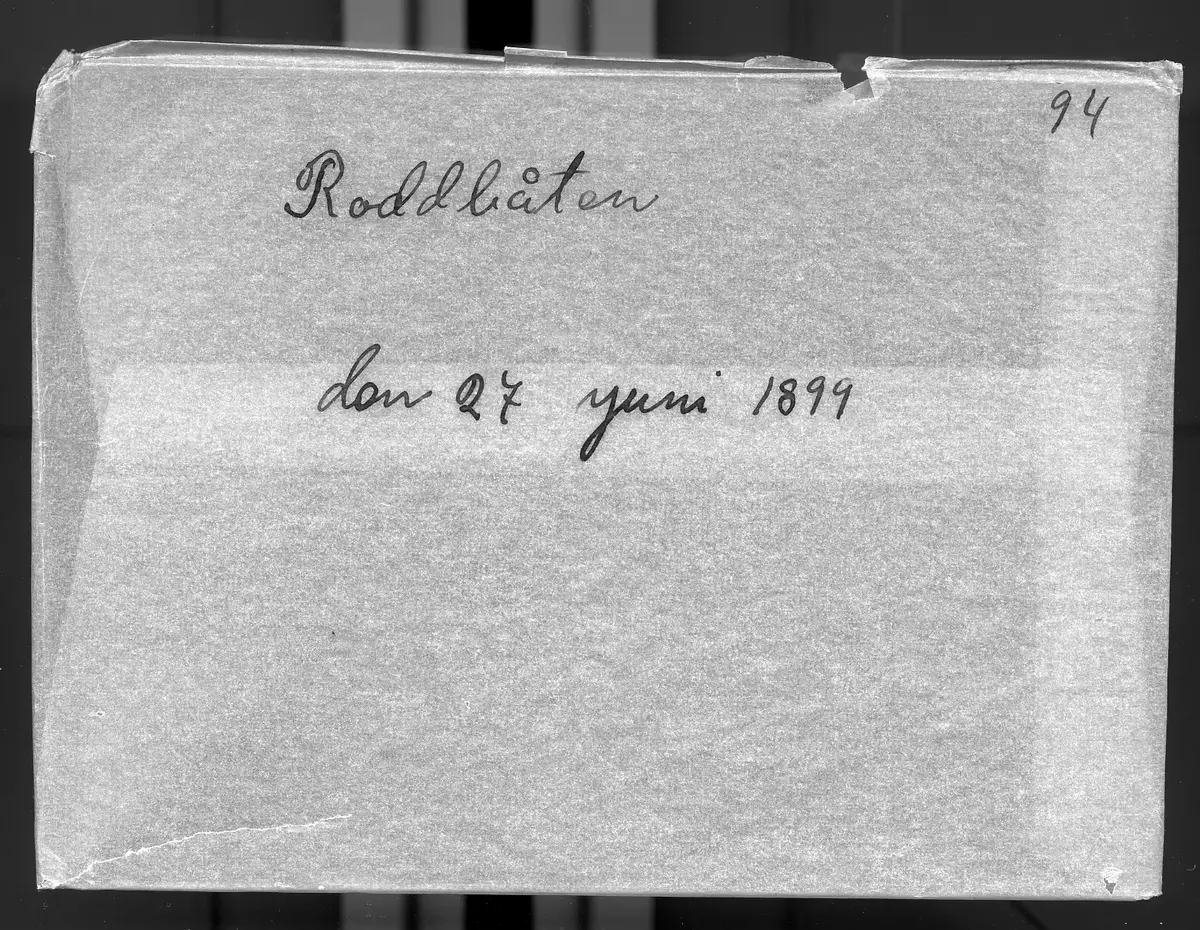 94
Roddbåten
den 27 yuni 1899